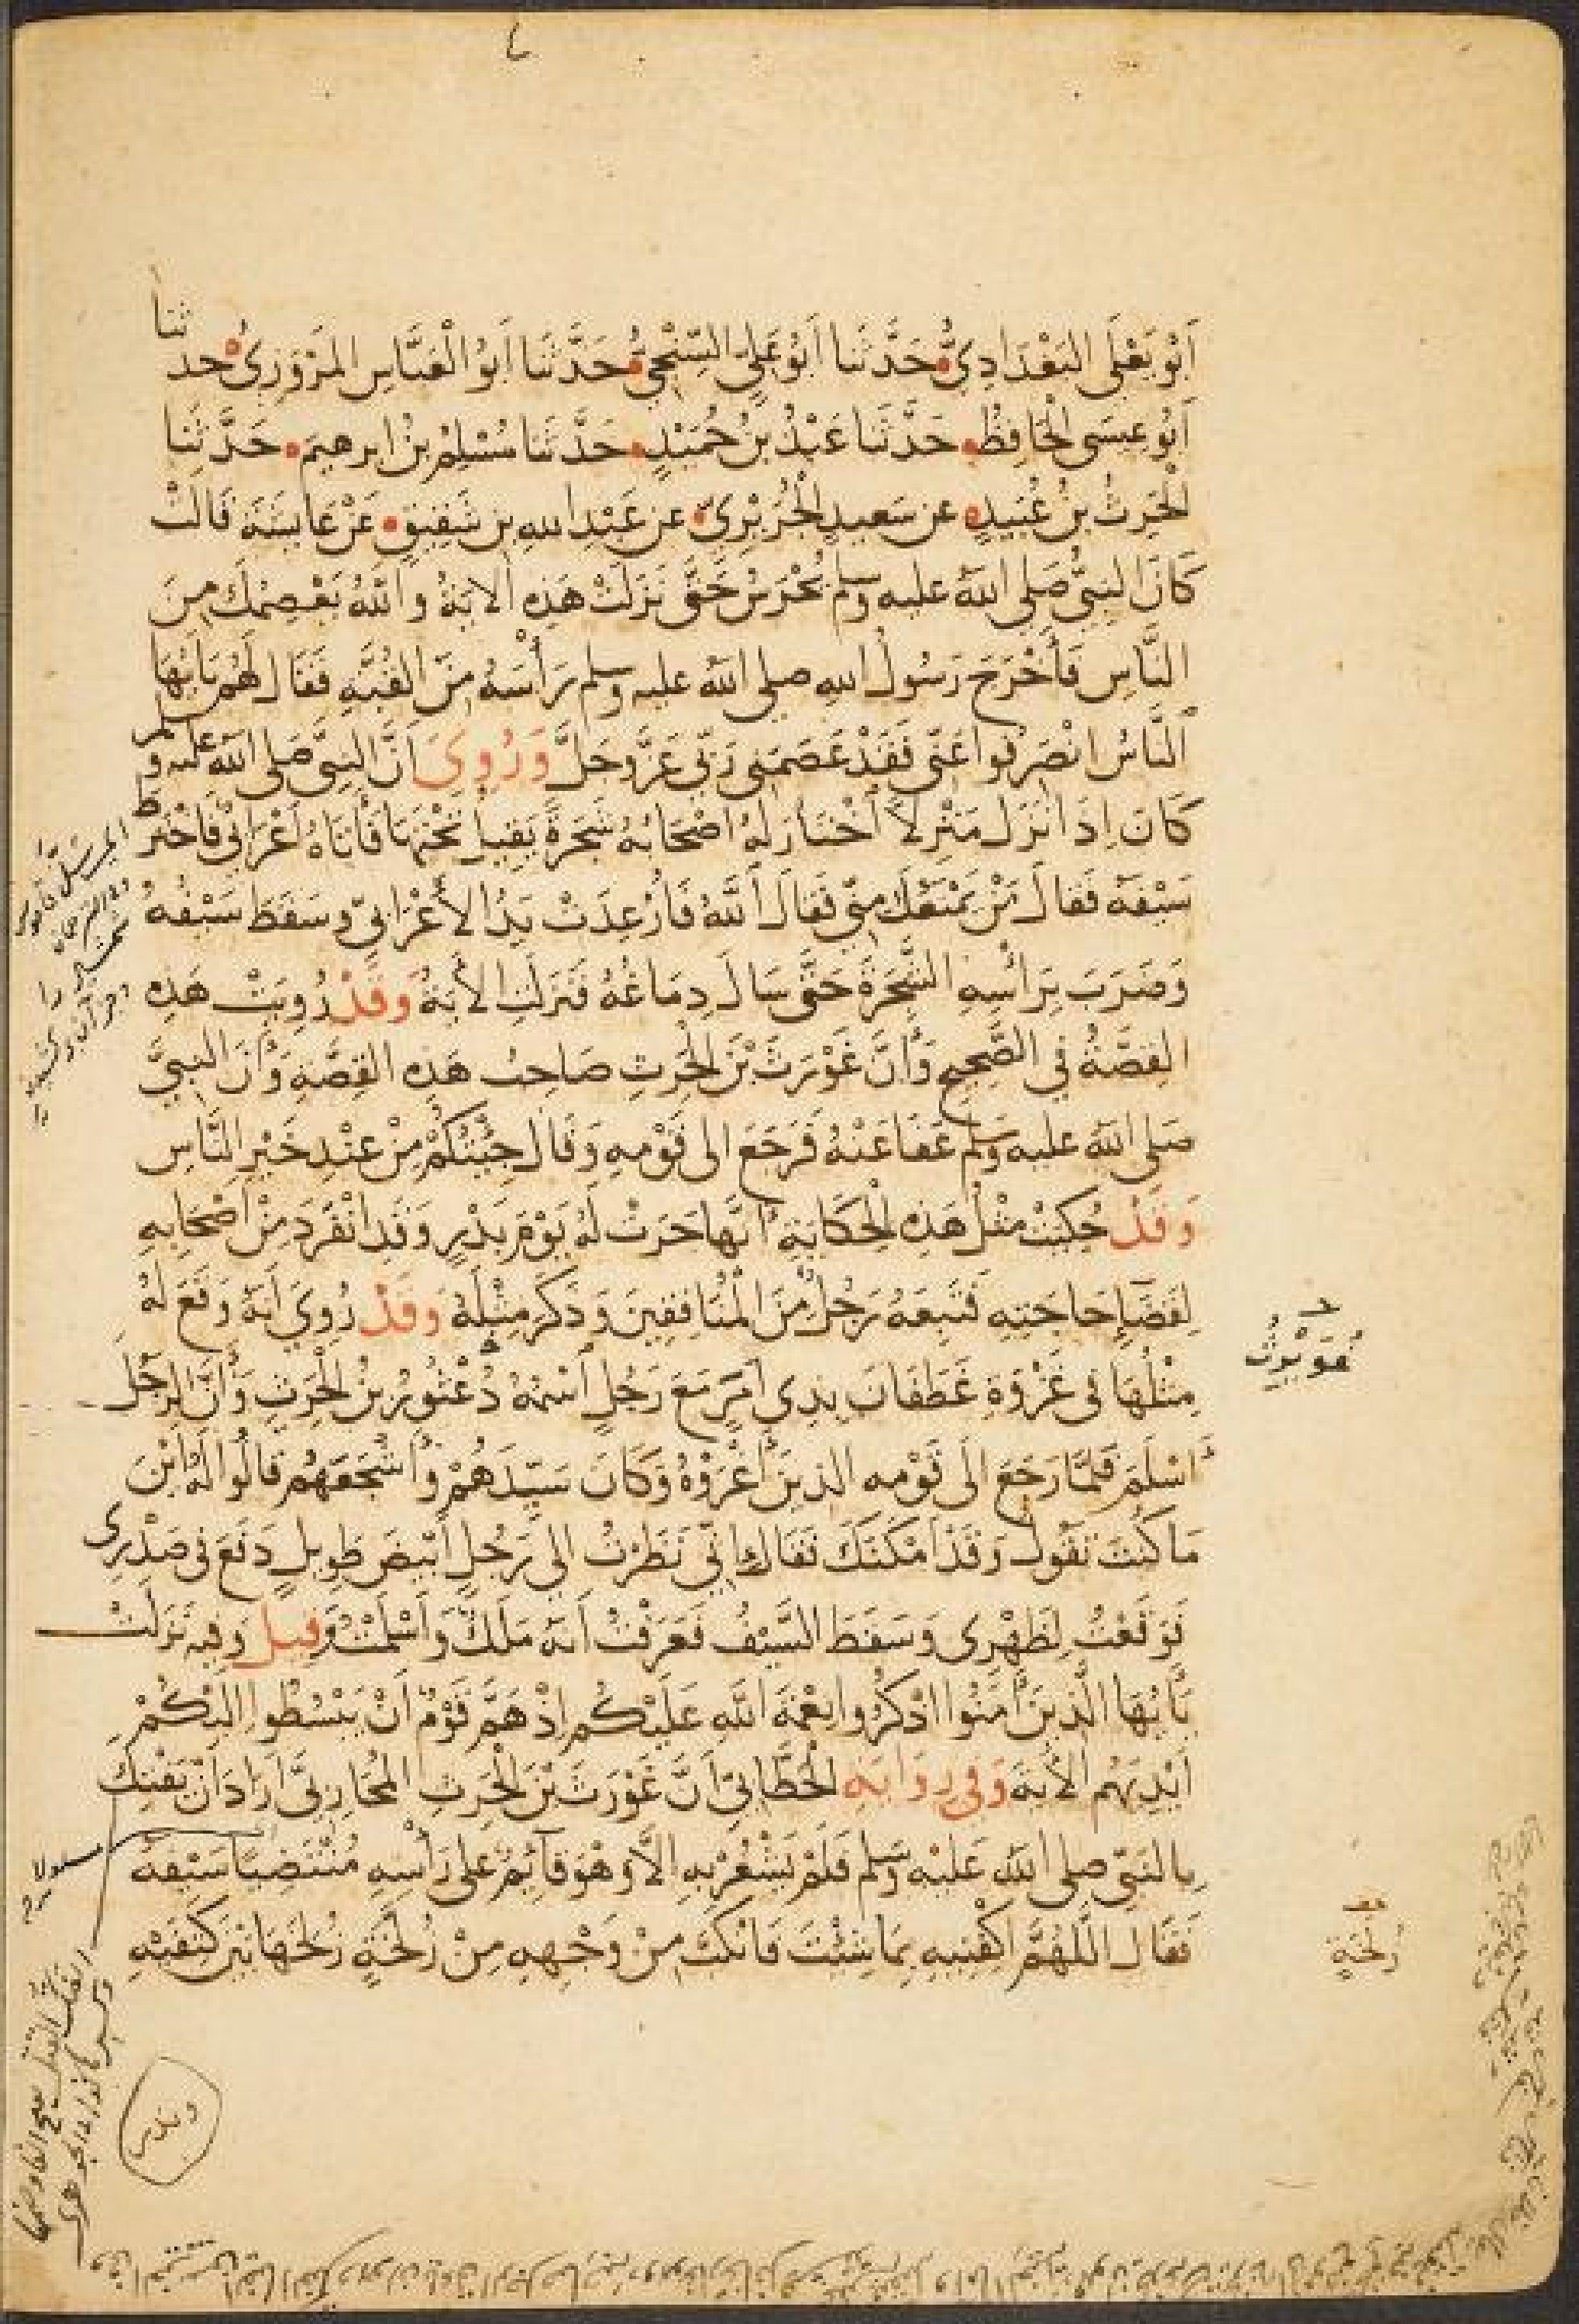 أَبُو يَعْلَى البَغْدَادِيُّ حَدَّثَنَا أَبُو عَلِيٍّ السِّنْجِيُّ حَدَّثَنَا أَبُو الْعَبَّاسِ المَرْوَزِيُّ حدثنا
أَبُو عِيسَى الْحَافِظُ حَدَّثَنَا عَبْدُ بْنُ حُمَيْدٍ حَدَّثَنَا مُسْلِمُ بْنُ ابرهيمَ حَدَّثَنَا
الْحَرِثُ بْنُ عُبَيدٍ عن سَعيدٍ الْجُرَيْرِيِّ عن عَبْدِ اللهِ بنِ شَقِيقٍ عَنْ عَايشَةَ قَالَتْ
كَانَ النَّبِيُّ صَلى اللهُ عليه وسلم يُحْرَسُ حَتَّى نَزَلَتْ هَذِهِ الآيَةُ وَاللهُ يَعْصِمُكَ مِنَ
النَّاسِ فَأَخْرَجَ رَسُولُ اللهِ صلى اللهُ عليه وسلم رَأْسَهُ مِنَ القُبَّةِ فَقَالَ لَهُم يَا أَيُّهَا
النَّاسُ انْصَرِفُوا عَنِّي فَقَدْ عَصَمَنِي رَبِّي عَزَّ وَجَلَّ وَرُوِيَ أَنَّ النَّبِيَّ صَلى اللهُ عليه وسلم
كَانَ اِذَا نَزَلَ مَنْزِلاً اخْتَارَ لَهُ اصْحَابُهُ شَجَرَةً يَقِيلُ تَحْتَهَا فَأَتَاهُ أَعْرَابِيٌّ فَاخْتَرَطَ
سَيْفَهُ فَقَالَ مَنْ يَمْنَعُكَ مِنِّي فَقَالَ اللهُ فَأُرْعِدَتْ يَدُ الأَعْرَابِيِّ وسَقَطَ سَيْفُهُ
وَضَرَبَ بِرَأْسِهِ الشَّجَرَةَ حَتَّى سَالَ دِمَاغُهُ فَنَزَلَتِ الآيَةُ وَقَدْ رُوِيَتْ هَذِهِ
القِصَّةُ فِي الصَّحِيحِ وَأَنَّ غَوْرَثَ بْنَ الْحَرِثِ صَاحِبُ هَذِهِ القِصَّةِ وَأَنَّ النَّبِيَّ
صَلى اللهُ عليه وسلم عَفَا عَنْهُ فَرَجَعَ الى قَوْمِهِ وَقَالَ جِئْتُكُمْ مِنْ عِنْدِ خَيْرِ النَّاسِ
وَقَدْ حُكِيَتْ مِثْلُ هَذِهِ الْحَكَايَةِ أَنَّهَا جَرَتْ لَهُ يَوْمَ بَدْرٍ وَقَدِ انْفَرَدَ مِنْ أَصْحَابِهِ
لِقَضَاءِ حَاجَتِهِ فَتَبِعَهُ رَجُلٌ مِنَ الْمُنَافِقِينَ وَذَكَرَ مِثْلَهُ وَقَدْ رُوِيَ أَنَّهُ وَقَعَ لَهُ
مِثْلُهَا في غَزْوَةِ غَطَفَانَ بِذِي أَمَرَّ مَعَ رَجُلٍ اسْمُهُ دُعْثُورُ بْنُ الْحَرِثِ وَأَنَّ الرَّجُلَ
اسْلَمَ فَلَمَّا رَجَعَ الَى قَوْمِهِ الذِينَ أَغْرَوْهُ وَكَانَ سَيِّدَهُمْ وَأَشْجَعَهُم قَالُوا لَهُ أَيْنَ
مَا كُنْتَ تَقُولُ وَقَدْ أَمْكَنَكَ فَقَالَ إِنِّي نَظَرْتُ الى رَجُلٍ أَبْيَضَ طَوِيلٍ دَفَعَ في صَدْرِي
فَوَقَعْتُ لِظَهْرِي وَسَقَطَ السَّيْفُ فَعَرَفْتُ أَنَّهُ مَلَكٌ وَأَسْلَمْتُ وَقِيلَ وَفِيهِ نَزَلَتْ
يَا أَيُّهَا الَّذِينَ آمَنُوا اذْكُرُوا نِعْمَةَ اللهِ عَلَيْكُم إِذْ هَمَّ قَوْمٌ أَنْ يَبْسُطُوا إِلَيْكُمْ
أَيْدِيَهُم الآيَةَ وَفِي رِوَايَةِ الْخَطَّابِيِّ أَنَّ غَوْرَثَ بْنَ الْحَرِثِ المُحَارِبِيَّ أَرَادَ أَنْ يَفْتِكَ
بِالنَّبِيِّ صلى اللهُ عَلَيْهِ وسلم فَلَمْ يَشْعُرْ بِهِ الاَّ وَهُوَ قَائِمٌ عَلى رَأْسِهِ مُنْتَضِيًا سَيْفَهُ
فَقَالَ اللَّهُمَّ اكْفِنِيهِ بِمَا شِئْتَ فَانْكَبَّ مِنْ وَجْهِهِ مِنْ زُلَخَةٍ زُلِخَهَا بَيْنَ كَتِفَيْهِ
غُوَيْرِثُ
زُلَّخَةٍ